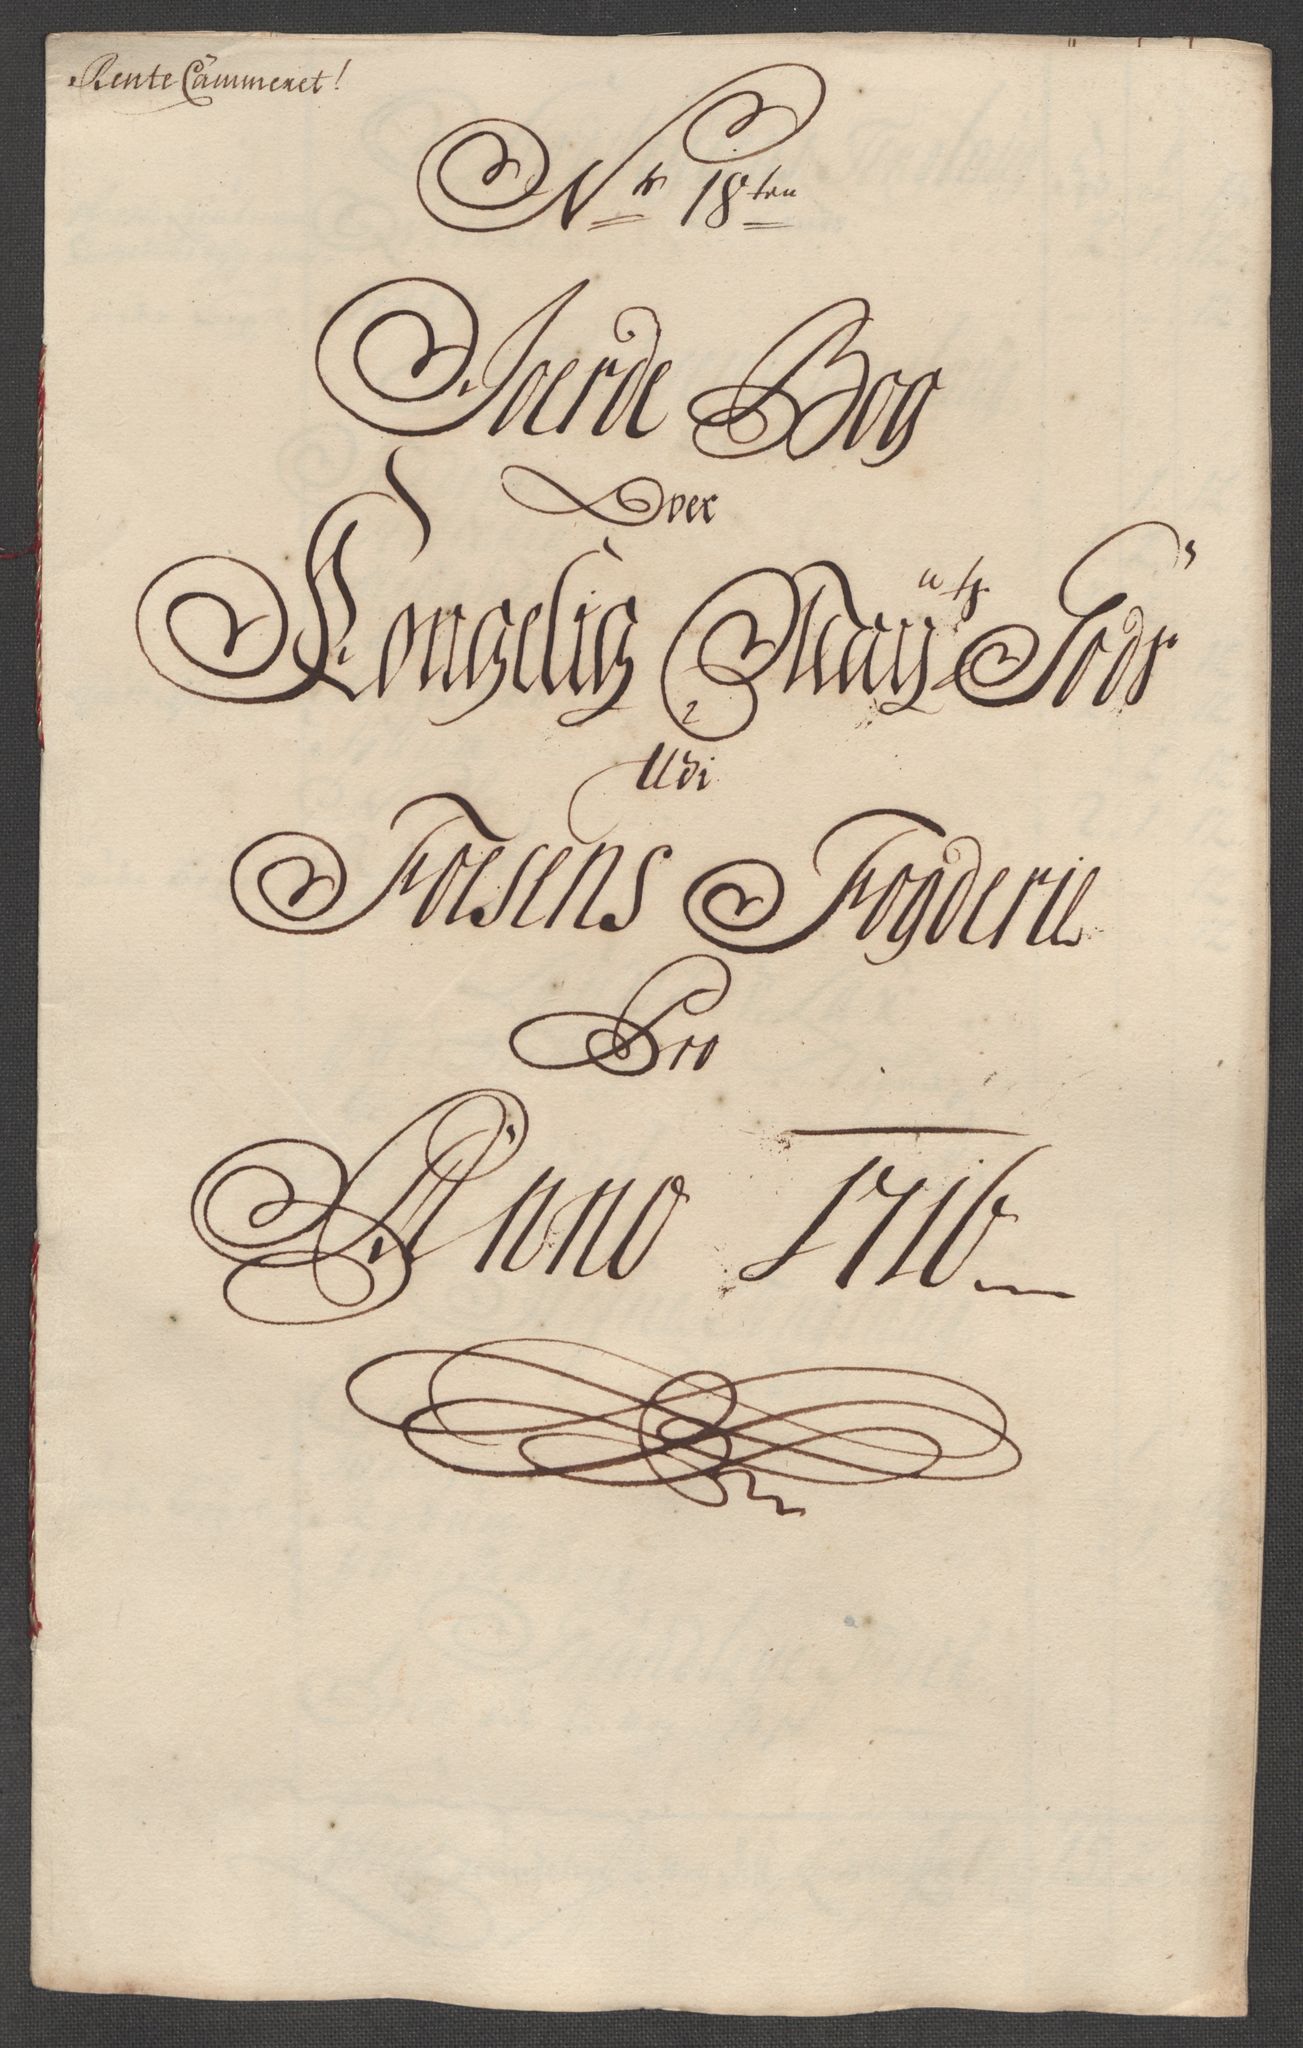 Rente Cammeret!
No 18ten
Joerde Bog
Over
Kongelig Mayts Gods
Udi
Foesens Fogderie
Pro
Anno 1716